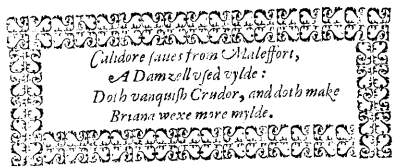 Calidore saues from Maleffort,
A Damzell vsed vylde:
Doth vanquish Crudor, and doth make
Briana wexe more mylde.